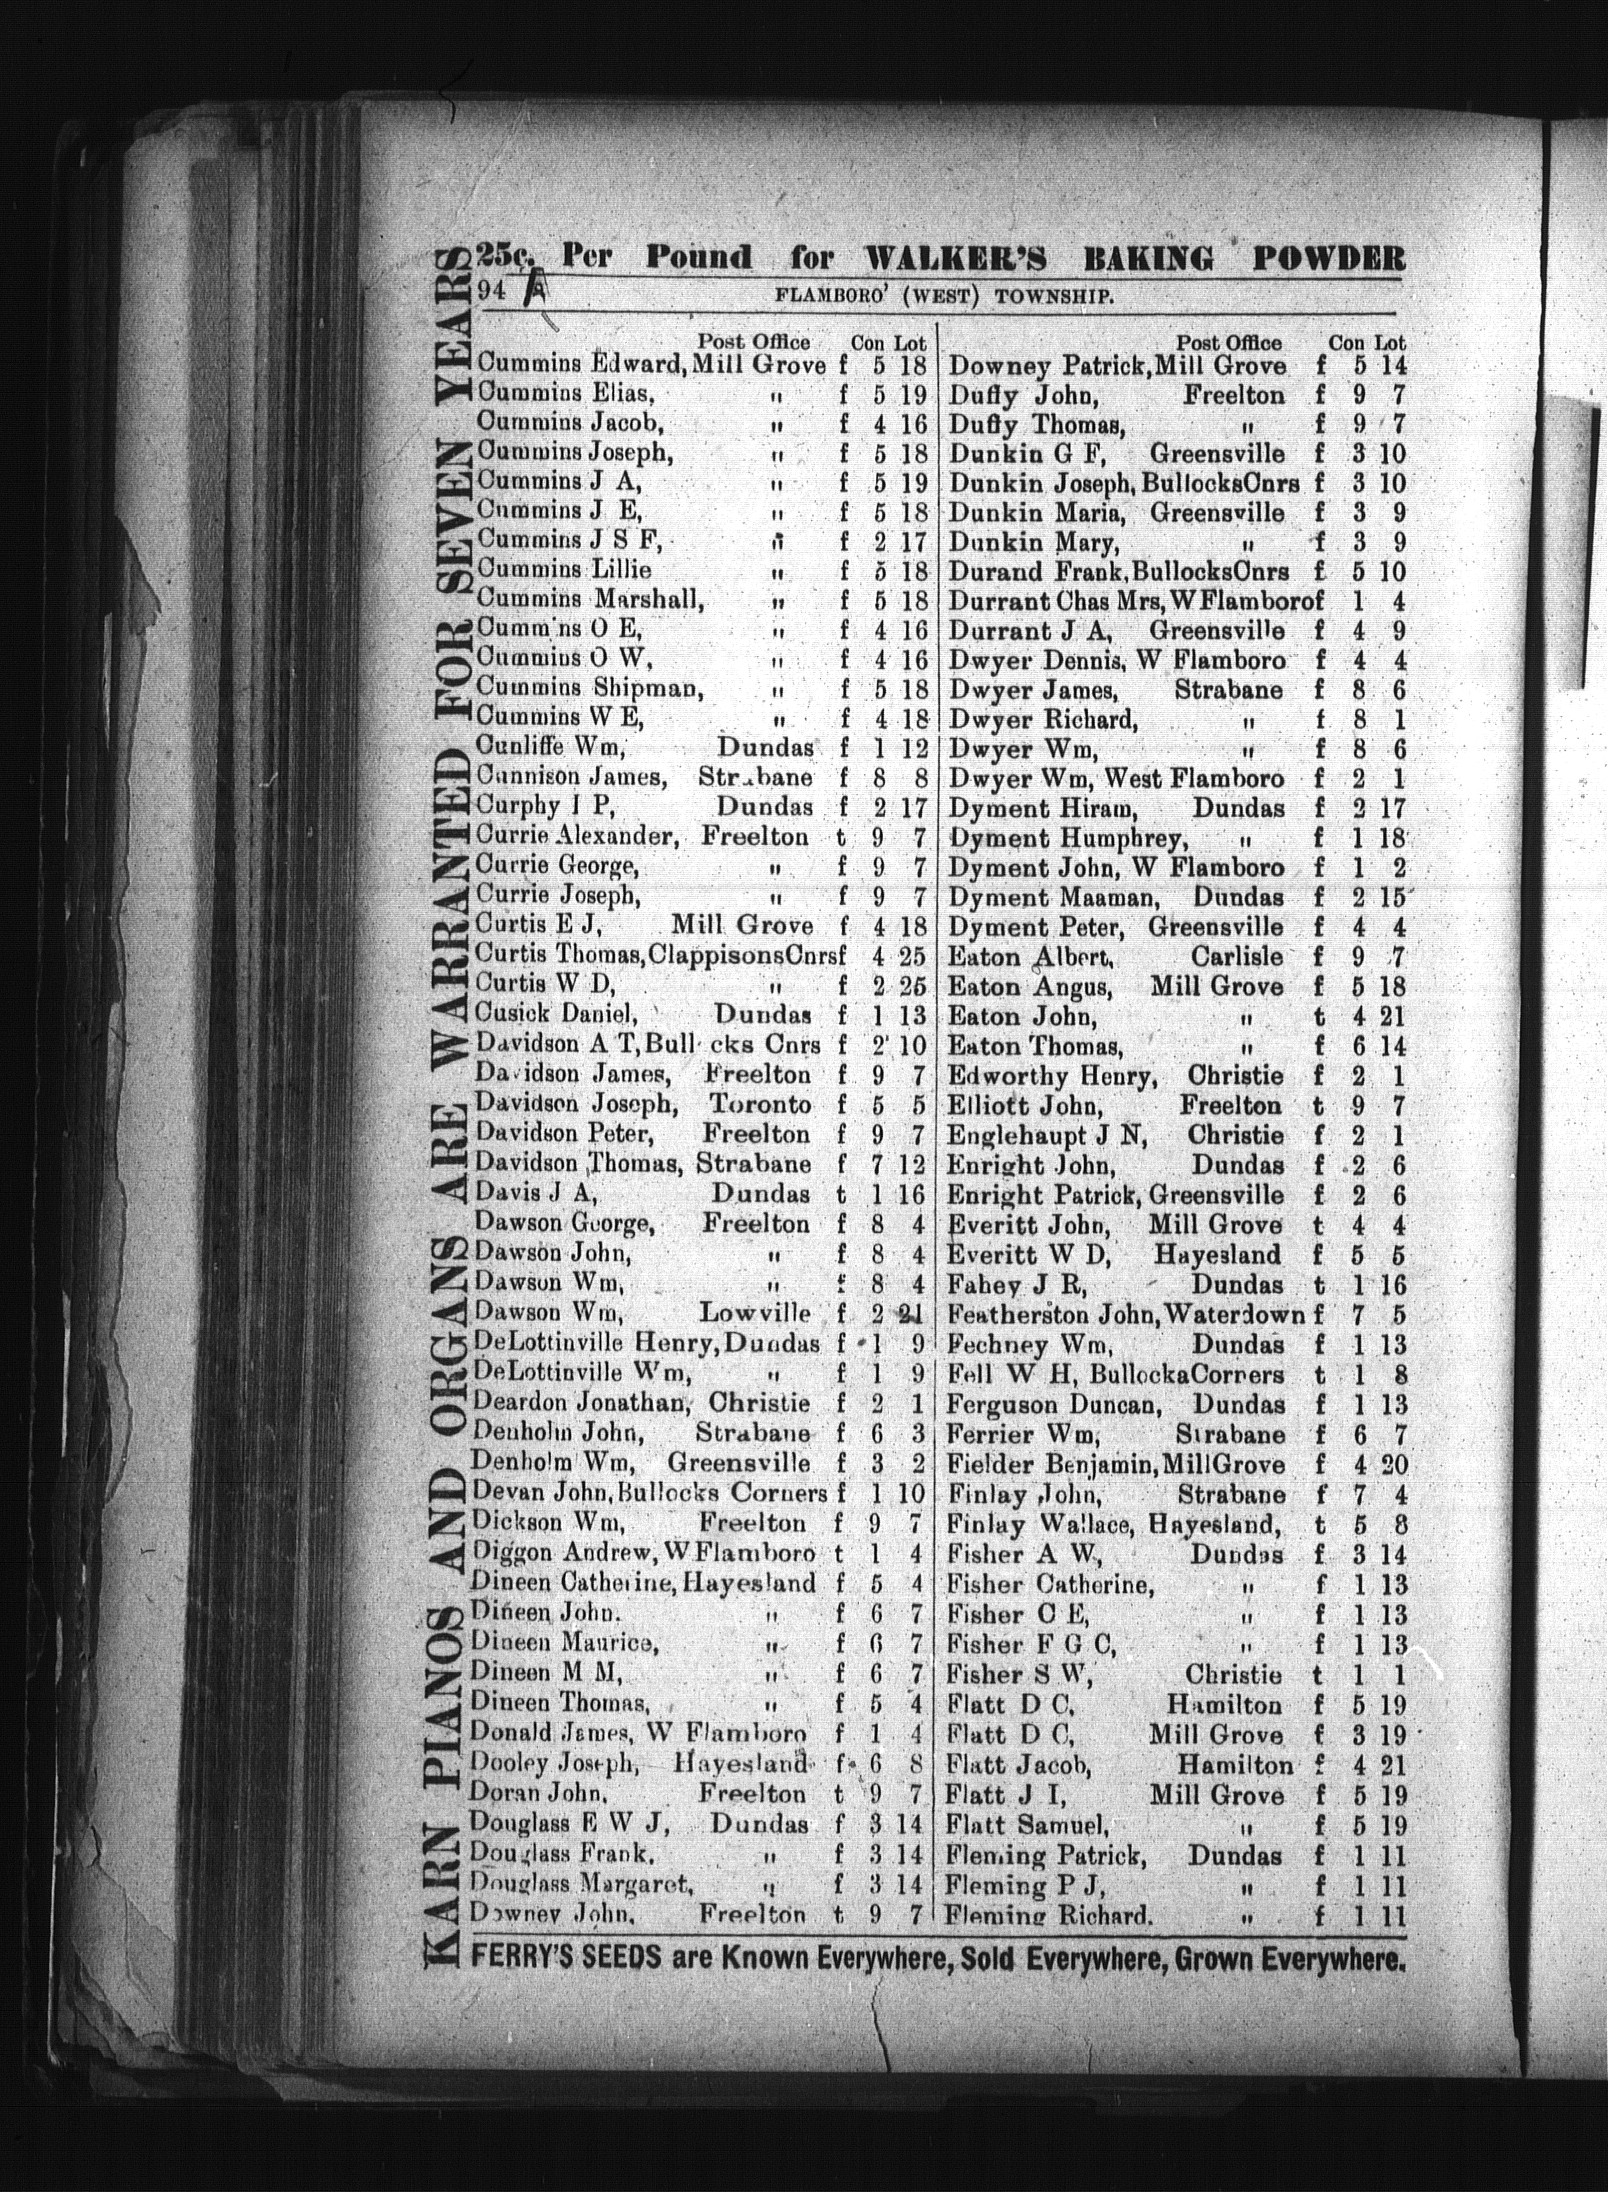 25c. Per Pound for WALKER'S BAKING POWDER
94 A
FLAMBORO' (WEST) TOWNSHIP.
KARN PIANOS AND ORGANS ARE WARRANTED FOR SEVEN YEARS
Post Office Con Lot
Cummins Edward, Mill Grove f 5 18
Cummins Elias, " f 5 19
Cummins Jacob, " f 4 16
Cummins Joseph, " f 5 18
Cummins J A, " f 5 19
Cummins J E, " f 5 18
Cummins J S F, " f 2 17
Cummins Lillie " f 5 18
Cummins Marshall, " f 5 18
Cummins O E, " f 4 16
Cummins O W, " f 4 16
Cummins Shipman, " f 5 18
Cummins W E, " f 4 18
Cunliffe Wm, Dundas f 1 12
Cunnison James, Strabane f 8 8
Curphy I P, Dundas f 2 17
Currie Alexander, Freelton t 9 7
Currie George, " f 9 7
Currie Joseph, " f 9 7
Curtis E J, Mill Grove f 4 18
Curtis Thomas, ClappisonsCnrs f 4 25
Curtis W D, " f 2 25
Cusick Daniel, Dundas f 1 13
Davidson A T, Bullocks Cnrs f 2 10
Davidson James, Freelton f 9 7
Davidson Joseph, Toronto f 5 5
Davidson Peter, Freelton f 9 7
Davidson Thomas, Strabane f 7 12
Davis J A, Dundas t 1 16
Dawson George, Freelton f 8 4
Dawson John, " f 8 4
Dawson Wm, " f 8 4
Dawson Wm, Lowville f 2 21
DeLottinville Henry, Dundas f 1 9
DeLottinville Wm, " f 1 9
Deardon Jonathan, Christie f 2 1
Denholm John, Strabane f 6 3
Denholm Wm, Greensville f 3 2
Devan John, Bullocks Corners f 1 10
Dickson Wm, Freelton f 9 7
Diggon Andrew, W Flamboro t 1 4
Dineen Catherine, Hayesland f 5 4
Dineen John. " f 6 7
Dineen Maurice, " f 6 7
Dineen M M, " f 6 7
Dineen Thomas, " f 5 4
Donald James, W Flamboro f 1 4
Dooley Joseph, Hayesland f 6 8
Doran John, Freelton t 9 7
Douglass E W J, Dundas f 3 14
Douglass Frank. " f 3 14
Douglass Margaret, " f 3 14
Downey John. Freelton t 9 7
Post Office Con Lot
Downey Patrick, Mill Grove f 5 14
Duffy John, Freelton f 9 7
Duffy Thomas, " f 9 7
Dunkin G F, Greensville f 3 10
Dunkin Joseph, BullocksCnrs f 3 10
Dunkin Maria, Greensville f 3 9
Dunkin Mary, " f 3 9
Durand Frank, BullocksCnrs f 5 10
Durrant Chas Mrs, W Flamboro f 1 4
Durrant J A, Greensville f 4 9
Dwyer Dennis, W Flamboro f 4 4
Dwyer James, Strabane f 8 6
Dwyer Richard, " f 8 1
Dwyer Wm, " f 8 6
Dwyer Wm, West Flamboro f 2 1
Dyment Hiram, Dundas f 2 17
Dyment Humphrey, " f 1 18
Dyment John, W Flamboro f 1 2
Dyment Maaman, Dundas f 2 15
Dyment Peter, Greensville f 4 4
Eaton Albert, Carlisle f 9 7
Eaton Angus, Mill Grove f 5 18
Eaton John, " t 4 21
Eaton Thomas, " f 6 14
Edworthy Henry, Christie f 2 1
Elliott John, Freelton t 9 7
Englehaupt J N, Christie f 2 1
Enright John, Dundas f 2 6
Enright Patrick, Greensville f 2 6
Everitt John, Mill Grove t 4 4
Everitt W D, Hayesland f 5 5
Fahey J R, Dundas t 1 16
Featherston John, Waterdown f 7 5
Fechney Wm, Dundas f 1 13
Fell W H, BullockaCorners t 1 8
Ferguson Duncan, Dundas f 1 13
Ferrier Wm, Strabane f 6 7
Fielder Benjamin, MillGrove f 4 20
Finlay John, Strabane f 7 4
Finlay Wallace, Hayesland, t 5 8
Fisher A W, Dundas f 3 14
Fisher Catherine, " f 1 13
Fisher C E, " f 1 13
Fisher F G C, " f 1 13
Fisher S W, Christie t 1 1
Flatt D C, Hamilton f 5 19
Flatt D C, Mill Grove f 3 19
Flatt Jacob, Hamilton f 4 21
Flatt J I, Mill Grove f 5 19
Flatt Samuel, " f 5 19
Fleming Patrick, Dundas f 1 11
Fleming P J, " f 1 11
Fleming Richard. " f 1 11
FERRY'S SEEDS are Known Everywhere, Sold Everywhere, Grown Everywhere.